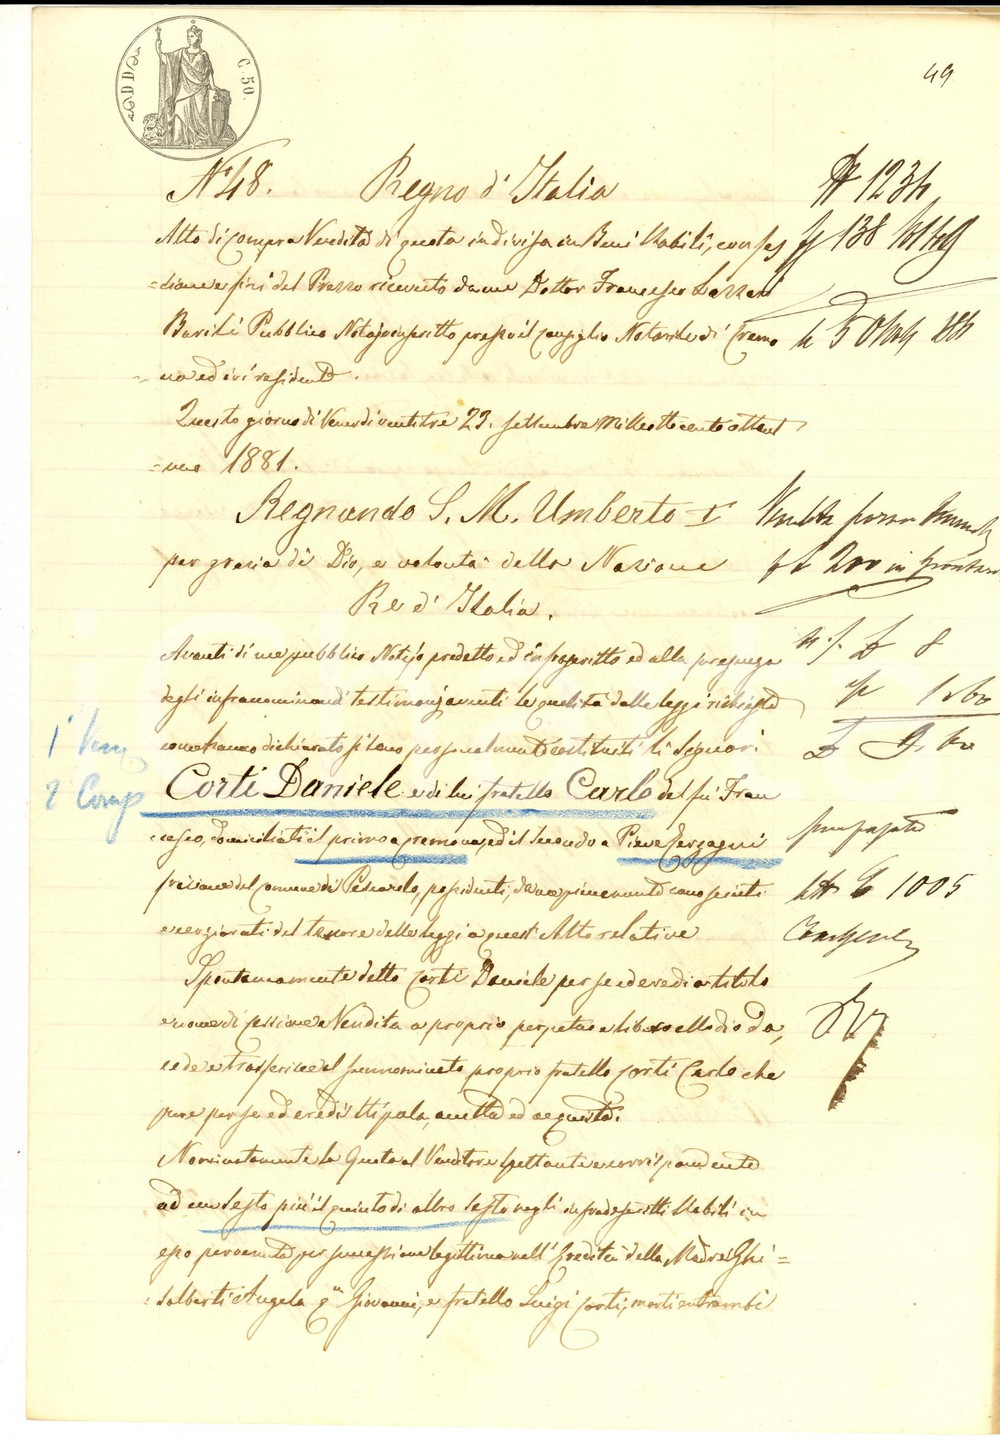 49
D D
C. 50.
N° 48. Regno d'Italia
Atto di Compra Vendita di quota indivisa in Beni Stabili, confes
=sione e fini del Prezzo ricevuto da me Dottor Francesco Lazzari
Barili Pubblico Notajo inscritto presso il Consiglio Notarile di Cremo
=na ed ivi residente.
Questo giorno di Venerdi ventitre 23. settembre Milleottocento ottant
=uno 1881.
Regnando S. M. Umberto I°
per grazia di Dio, e volontà della Nazione
Re d'Italia.
Avanti di me pubblico Notajo predetto ed infrascritto ed alla presenza
degli infranominandi testimonj aventi le qualità dalle leggi richieste
come hanno dichiarato si sono personalmente costituiti li Signori
Corti Daniele e di lui fratello Carlo del fu Fran
=cesco, domiciliati il primo a Cremona, ed il secondo a Pieve Terzagni
frazione del Comune di Pescarolo, possidenti, da me pienamente conosciuti
e cerziorati del tenore delle leggi a quest'Atto relative
Spontaneamente detto Corti Daniele per se ed eredi a titolo
e nome di cessione e Vendita a proprio perpetuo e libero allodio da,
cede e trasferisce al sunnominato proprio fratello Corti Carlo che
pure per se ed eredi stipula, accetta ed acquista:
Nominatamente la Quota al Venditore spettante e corrispondente
ad un sesto più il quinto di altro sesto negli infradescritti Stabili in
esso pervenuta per successione legittima nell'Eredità della Madre Ghi=
=salberti Angela qm Giovanni, e fratello Luigi Corti, morti entrambi
1° Ven
2° Comp
N 1234
138
£ 200 in
£ 8
£ 1005